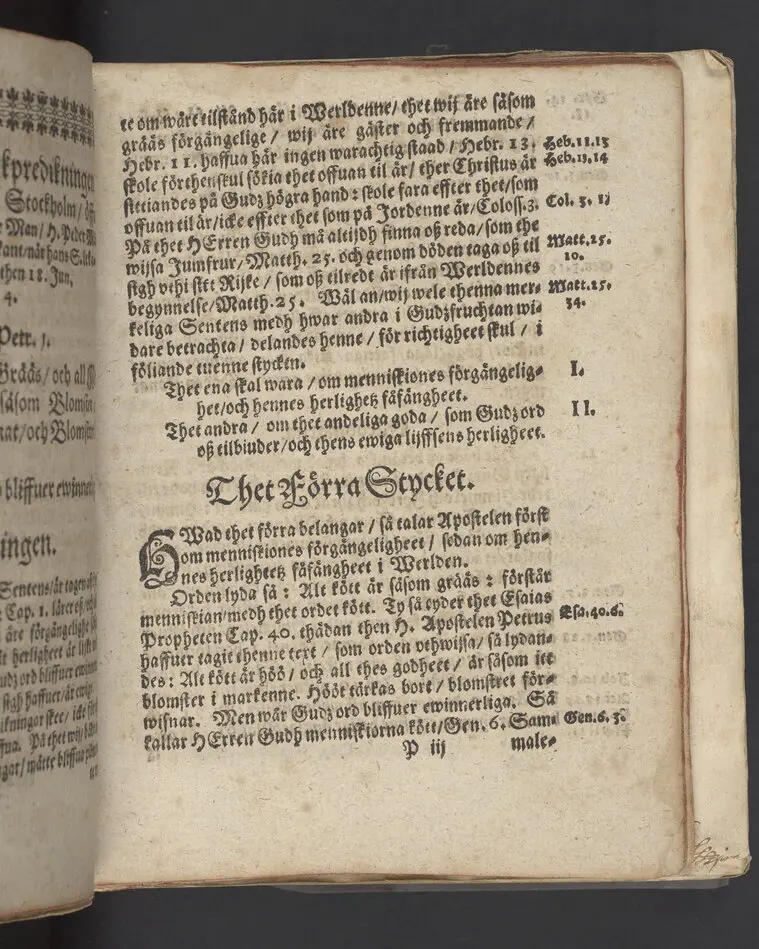 kpredikningen
Stockholm / öff
Man / H. Peder
then 18. Jun.
4.
Petr. 1.
Grääs / och all
såsom Blomster
och Blomster
bliffuer ewinner
ingen.
Sentens / är tagen
Cap. 1. lärer oß
äre förgängelighe
herligheet är
udz ord bliffuer ewinner
stgh haffuer / är ewig
ikningar skee / icke
ffua. På thet wij
gar / måtte bliffua
te om wårt tilstånd här i Werldenne / thet wij äre såsom
grääs förgängelige / wij äre gäster och fremmande /
Hebr. 11. haffua här ingen warachtig staad / Hebr. 13. Heb. 11. 13
skole förthenskul sökia thet offuan til är / ther Christus är Heb. 13. 14
sittiandes på Gudz högra hand: skole fara effter thet / som
offuan til är / icke effter thet som på Jordenne är / Coloss. 3. Col. 3. 1
På thet HErren Gudh må altijdh finna oß reda / som the
wijsa Jumfrur / Matth. 25. och genom döden taga oß til Matt. 25.
sigh vthi sitt Rijke / som oß tilredt är ifrån Werldennes 10.
begynnelse / Matth. 25. Wäl an / wij wele thenna mer- Matt. 25.
keliga Sentens medh hwar andra i Gudzfruchtan wi- 34.
dare betrachta / delandes henne / för richtigheet skul / i
föliande tuenne stycken.
Thet ena skal wara / om menniskiones förgängelig- I.
het / och hennes herlighetz fåfängheet.
Thet andra / om thet andeliga goda / som Gudz ord II.
oß tilbiuder / och thens ewiga lijffsens herligheet.
Thet Förra Stycket.
HWad thet förra belangar / så talar Apostelen först
om menniskiones förgängeligheet / sedan om hen-
nes herlighetz fåfängheet i Werlden.
Orden lyda så : Alt kött är såsom grääs : förstår
menniskian / medh thet ordet kött. Ty så tyder thet Esaias
Propheten Cap. 40. thädan then H. Apostelen Petrus Esa. 40. 6.
haffuer tagit thenne text / som orden vthwijsa / så lydan-
des : Alt kött är höö / och all thes godheet / är såsom itt
blomster i markenne. Hööt tårkas bort / blomstret för-
wisnar. Men wår Gudz ord bliffuer ewinnerliga. Så
kallar HErren Gudh menniskiorna kött / Gen. 6. Sam- Gen. 6. 3.
P iij male-